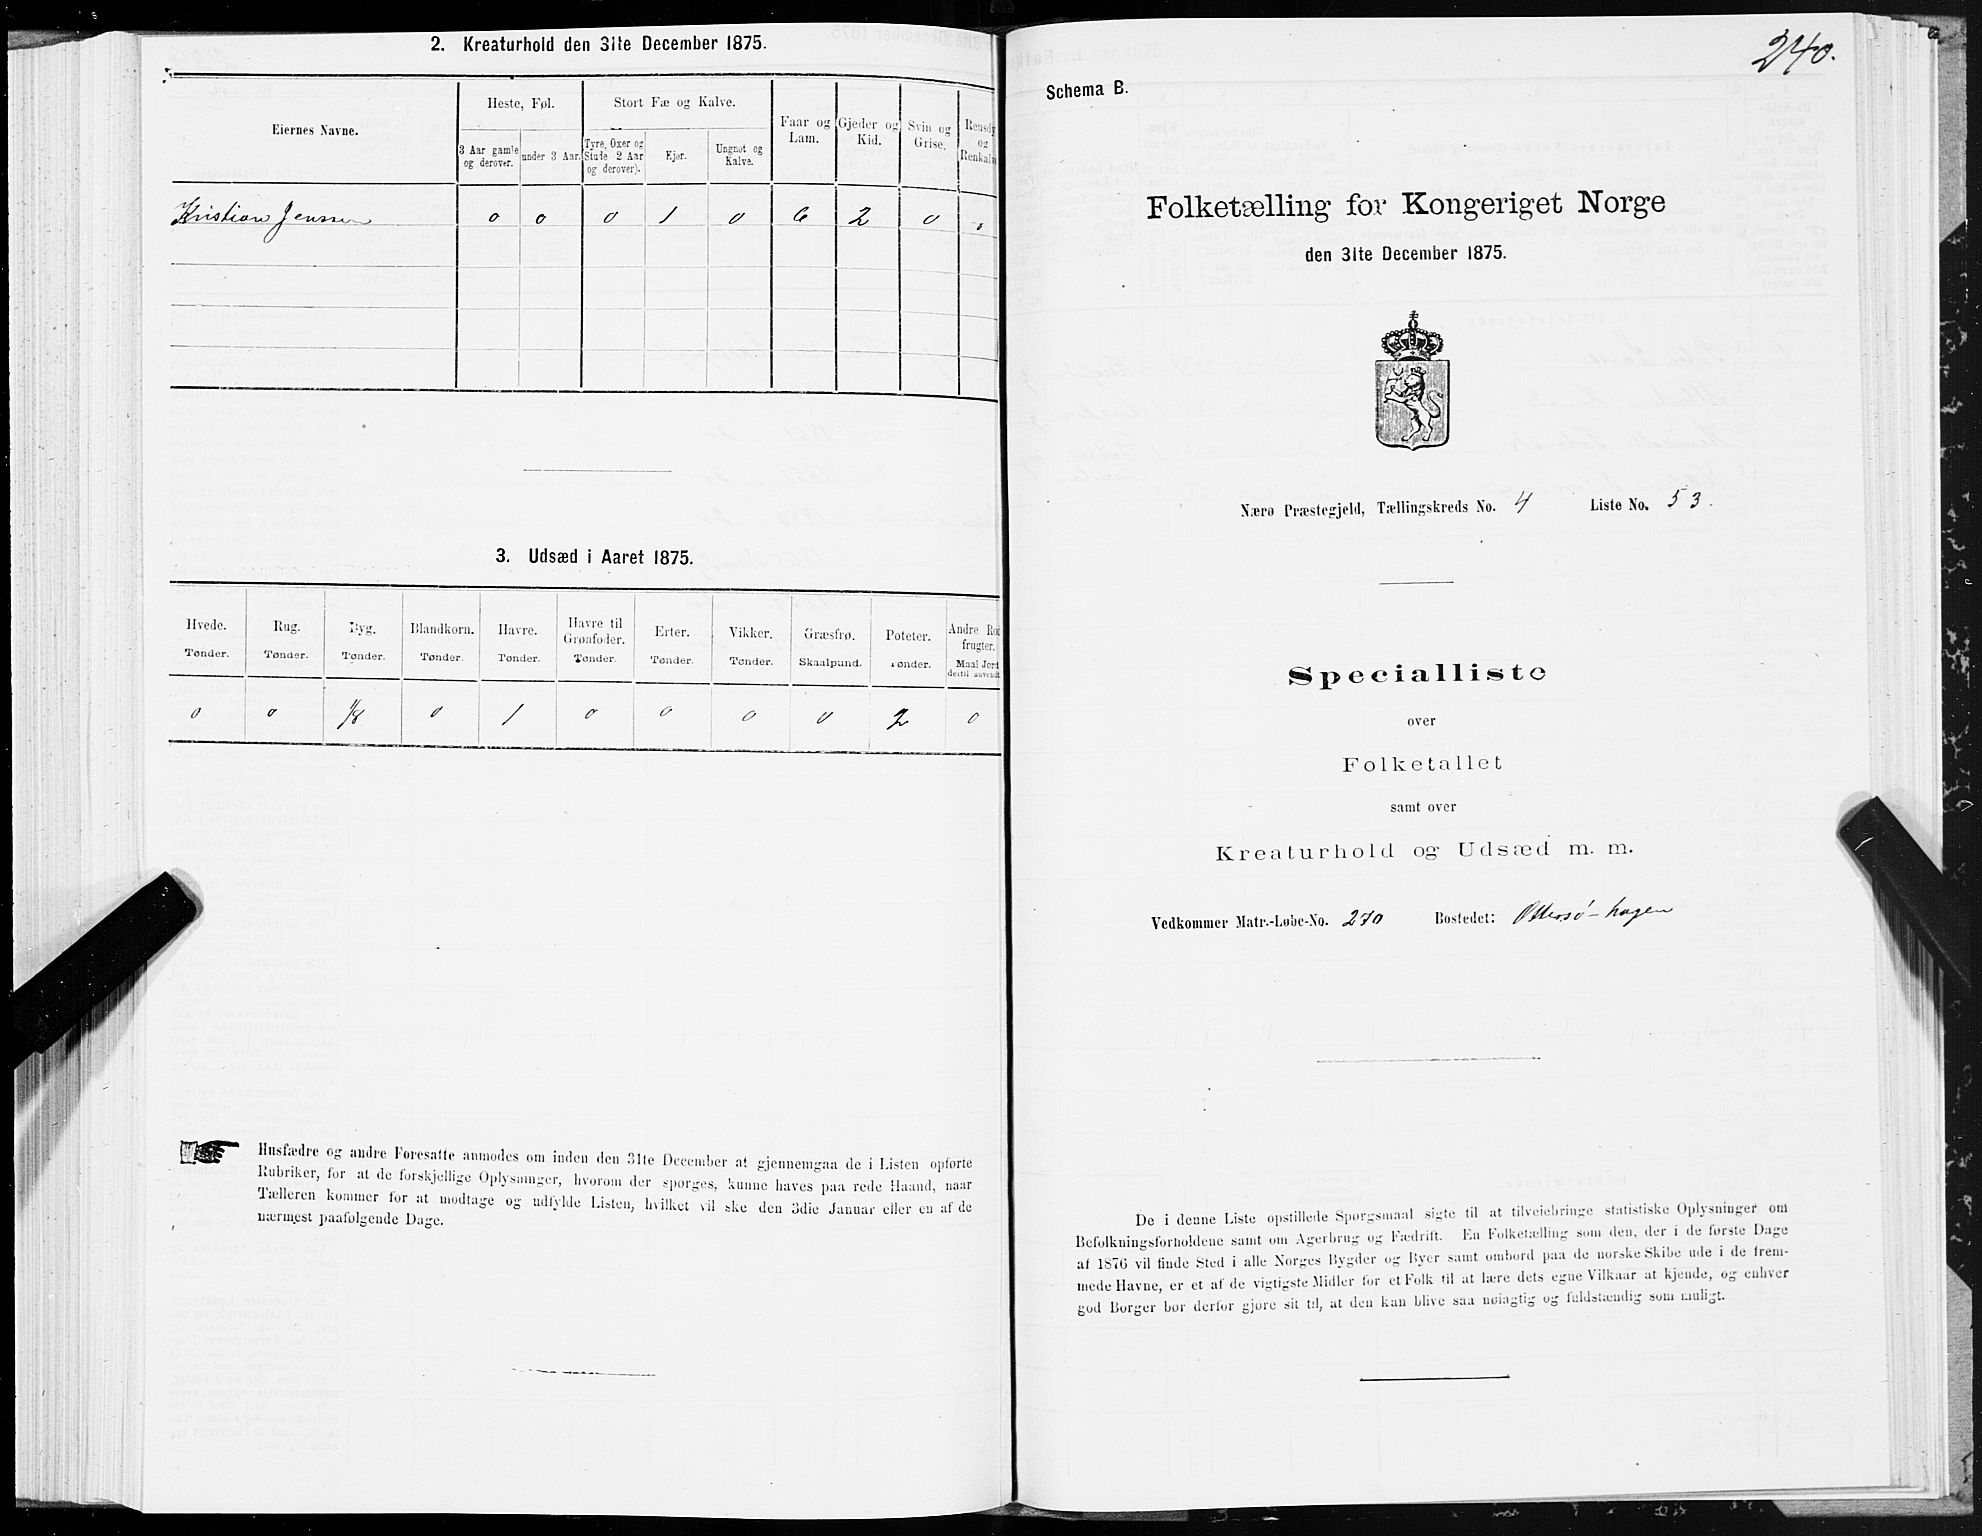 2. Kreaturhold den 31te December 1875.
Eiernes Navne.
Heste, Føl.
Stort Fæ og Kalve.
Faar og Lam.
Gjeder og Kid.
Svin og Grise.
Rensdy og Renkalv
3 Aar gamle og derover.
under 3 Aar.
Tyre, Oxer og Stude 2 Aar og derover).
Kjør.
Ungnøt og Kalve.
Kristian Jenssen 0 0 0 1 0 6 2 0 0
3. Udsæd i Aaret 1875.
Hvede. Rug. Byg. Blandkorn. Havre. Havre til Grønfoder. Erter. Vikker. Græsfrø. Poteter. Andre Rod frugter.
Tønder. Tønder. Tønder. Tønder. Tønder. Tønder. Tønder. Tønder. Skaalpund. Tønder. Maal Jord dertil anvendt
0 0 1/8 0 1 0 0 0 0 2 0
Husfædre og andre Foresatte anmodes om inden den 31te December at gjennemgaa de i Listen opførte
Rubriker, for at de forskjellige Oplysninger, hvorom der spørges, kunne haves paa rede Haand, naar
Tælleren kommer for at modtage og udfylde Listen, hvilket vil ske den 3die Januar eller en af de
nærmest paafølgende Dage.
240.
Schema B.
Folketælling for Kongeriget Norge
den 31te December 1875.
Nærø Præstegjeld, Tællingskreds No. 4 Liste No. 53.
Specialliste
over
Folketallet
samt over
Kreaturhold og Udsæd m. m.
Vedkommer Matr.-Løbe-No. 270 Bostedet: Ottersø-hagen
De i denne Liste opstillede Spørgsmaal sigte til at tilveiebringe statistiske Oplysninger om
Befolkningsforholdene samt om Agerbrug og Fædrift. En Folketælling som den, der i de første Dage
af 1876 vil finde Sted i alle Norges Bygder og Byer samt ombord paa de norske Skibe ude i de frem-
mede Havne, er et af de vigtigste Midler for et Folk til at lære dets egne Vilkaar at kjende, og enhver
god Borger bør derfor gjøre sit til, at den kan blive saa nøiagtig og fuldstændig som muligt.